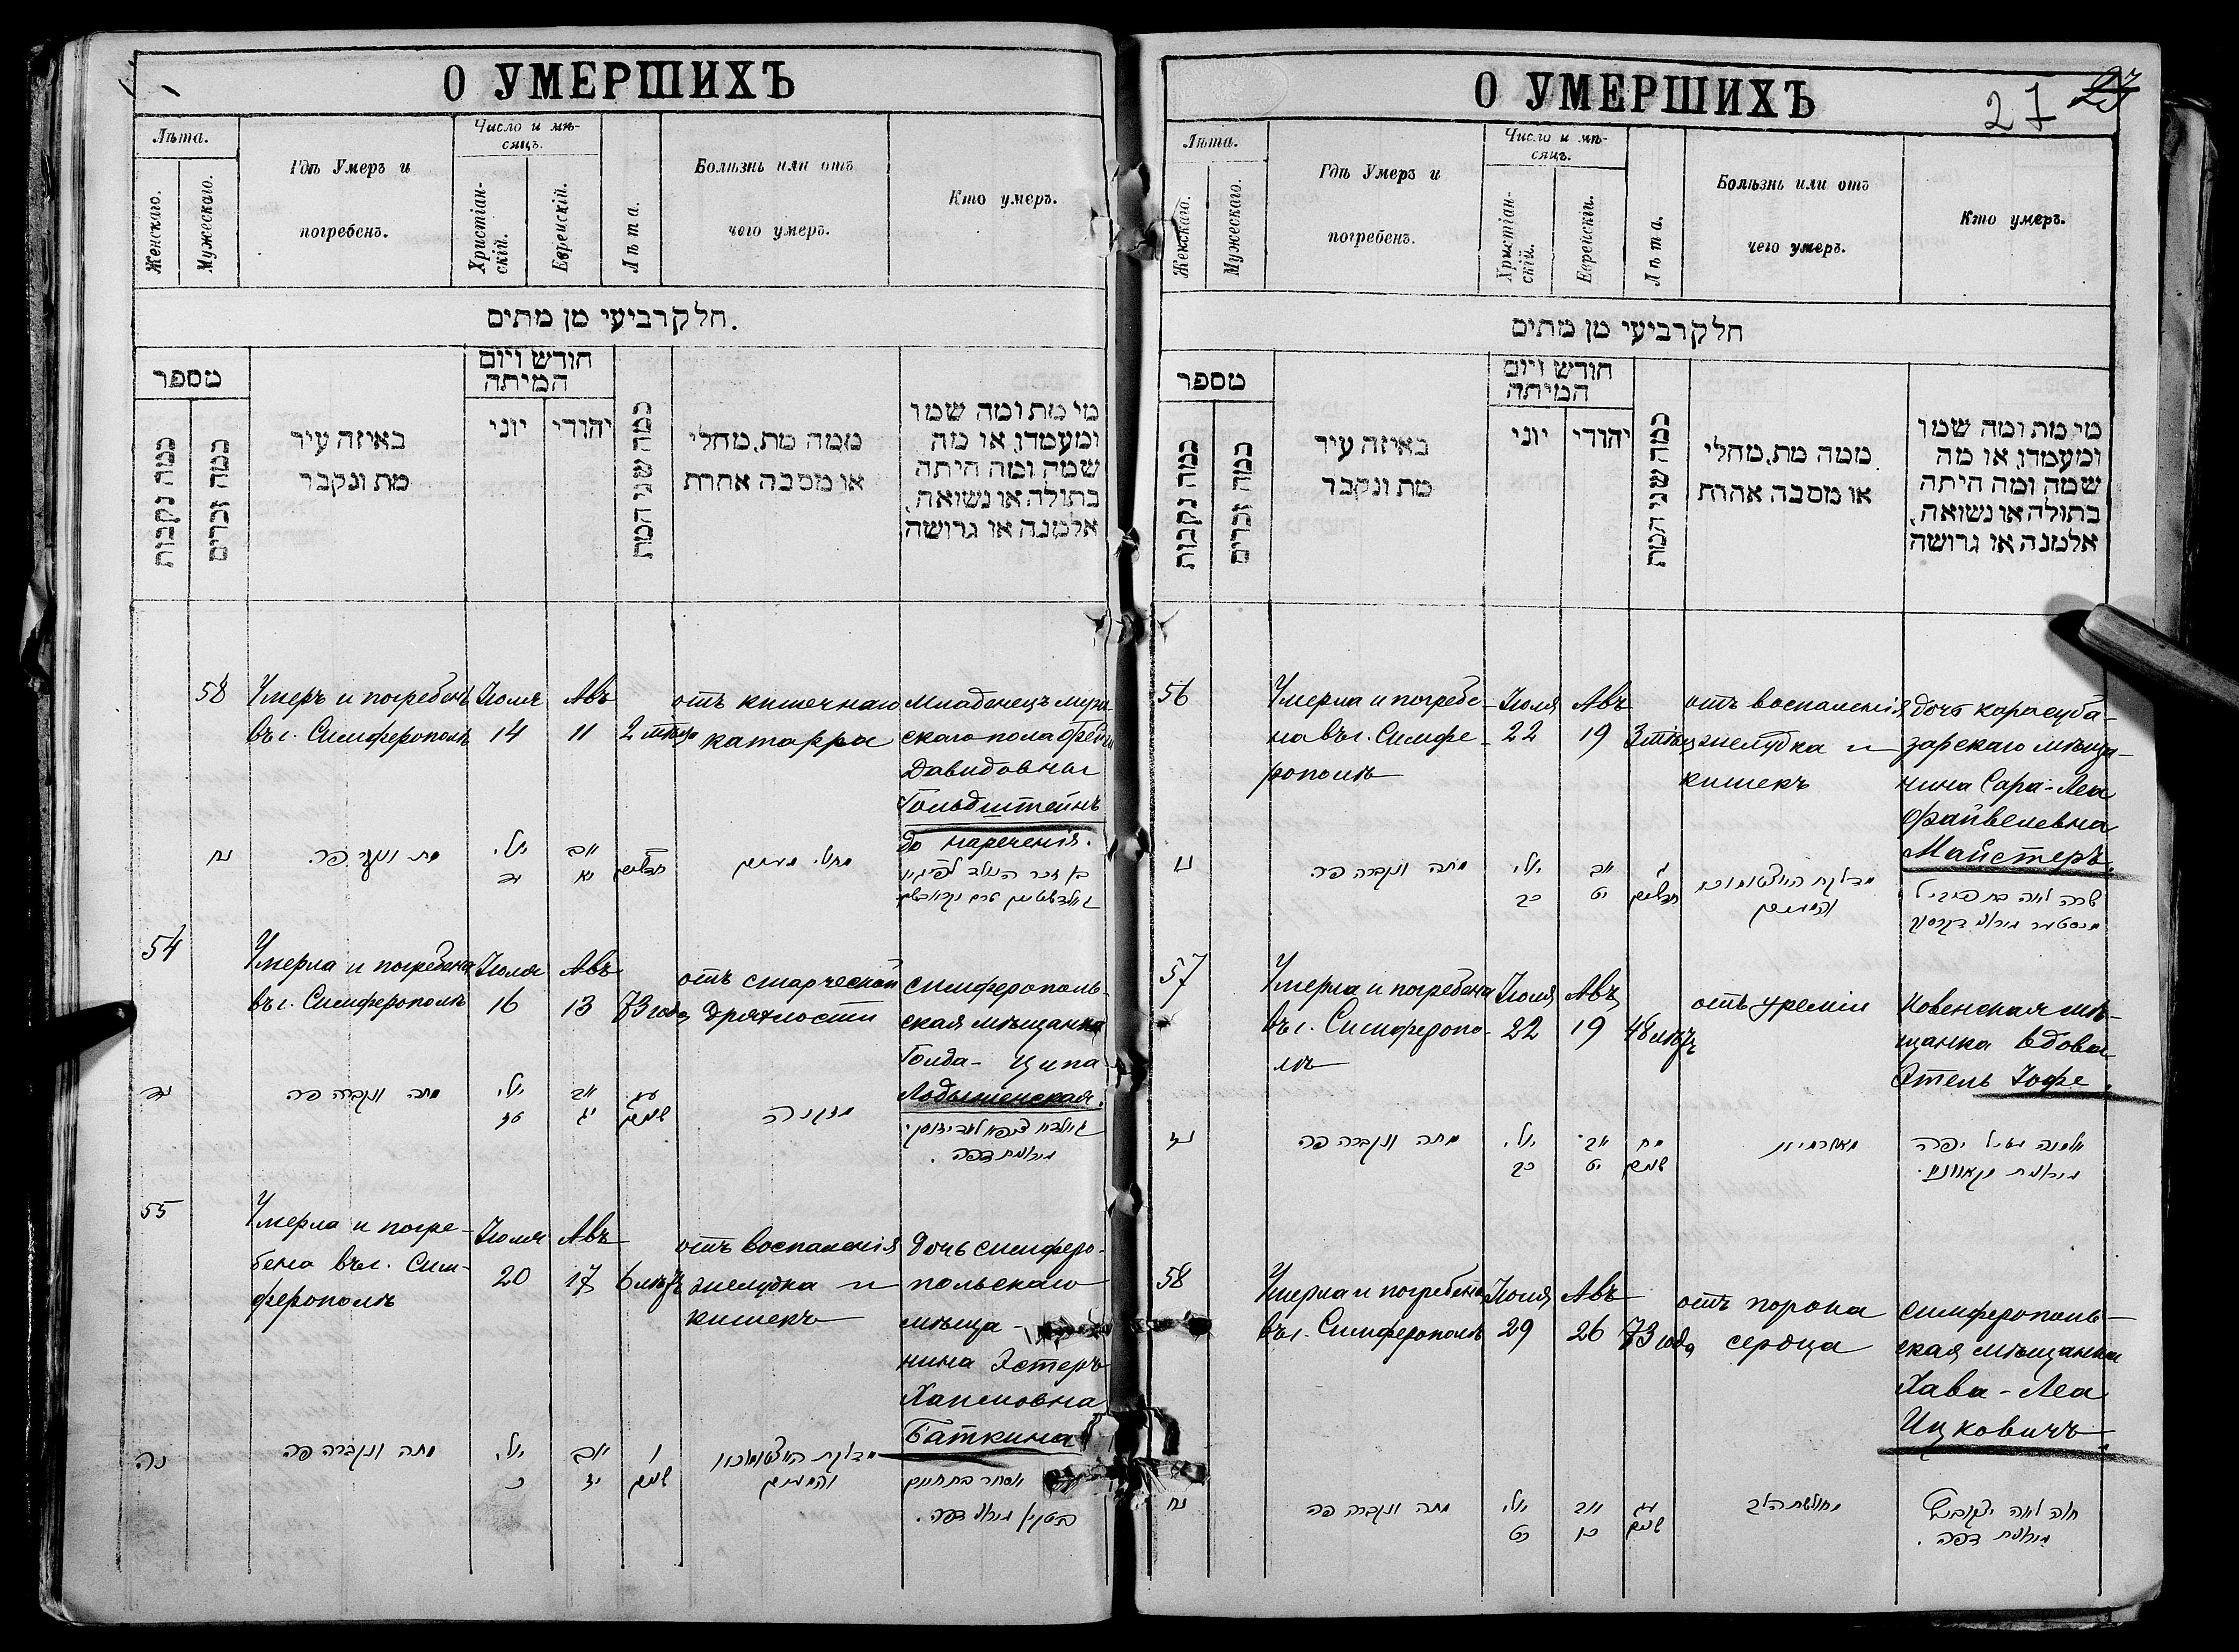 О УМЕРШИХЪ
Лѣта.
Женскаго.
Мужескаго.
Гдѣ Умеръ и
погребенъ.
Число и мѣ-
сяцъ.
Христіан-
скій.
Еврейскій.
Лѣта.
Болѣзнь или отъ
чего умеръ.
Кто умеръ.
חלק רביעי מן מתים.
מספר
כמה נקבות
כמה זכרים
באיזה עיר
מת ונקבר
חודש ויום
המיתה
יוני
יהודי
כמה שני המת
ממה מת, מחלי
או מסבה אחרת
מי מת ומה שמו
ומעמדו, או מה
שמה ומה היתה
בתולה או נשואה,
אלמנה או גרושה
58
Умеръ и погребенъ
въ г. Симферополѣ
Іюля
14
Авъ
11
2 мѣсца
отъ кишечнаго
катарра
Младенецъ муж
скаго пола
Давидовны
Гольдштейнъ
до нареченія.
נח
מת ונקבר פה.
יולי
יד
אב
יא
מחלי מעים
54
Умерла и погребена
въ г. Симферополѣ
Іюля
16
Авъ
13
73 года
отъ старческой
дряхлости
симферополь-
ская мѣщанка
Голда-Ципа
Лодыженская.
נד
מתה ונקברה פה
יולי
טז
אב
יג
עג
שנים
מזקנה
55
Умерла и погре-
бена въ г. Сим-
ферополѣ
Іюля
20
Авъ
17
6 лѣтъ
отъ воспаленія
желудка и
кишекъ
дочь симферо-
польскаго
мѣща-
нина Эстеръ
Хаимовна
Баткина
נה
מתה ונקברה פה
יולי
כ
אב
יז
ו
שנים
אסתר בת חיים
О УМЕРШИХЪ
27
23
Лѣта.
Женскаго.
Мужескаго.
Гдѣ Умеръ и
погребенъ.
Число и мѣ-
сяцъ.
Христіан-
скій.
Еврейскіи.
Лѣта.
Болѣзнь или отъ
чего умеръ.
Кто умеръ.
חלק רביעי מן מתים
מספר
כמה נקבות
כמה זכרים
באיזה עיר
מת ונקבר
חודש ויום
המיתה
יוני
יהודי
כמה שני המת
ממה מת, מחלי
או מסבה אחרת
מי מת ומה שמו
ומעמדו, או מה
שמה ומה היתה
בתולה או נשואה,
אלמנה או גרושה
56
Умерла и погребе-
на въ г. Симфе-
рополѣ
Іюля
22
Авъ
19
3 мѣсц
отъ воспаленія
желудка и
кишекъ
дочь карасуба-
зарскаго мѣща-
нина Сара-Леа
Файвелевна
Майстеръ.
נו
מתה ונקברה פה
יולי
כב
אב
יט
ג
חדשים
57
Умерла и погребена
въ г. Симферопо-
лѣ
Іюля
22
Авъ
19
48 лѣтъ
отъ уреміи
Ковенская мѣ-
щанка вдова
Этель Іофе.
נז
מתה ונקברה פה
יולי
כב
אב
יט
מח
שנים
58
Умерла и погребенъ
въ г. Симферополѣ
Іюля
29
Авъ
26
73 года
отъ порока
сердца
симферополь-
ская мѣщанка
Хава-Леа
Ицковичъ.
נח
מתה ונקברה פה
יולי
כט
אב
כו
עג
שנים
מחולשת הלב
חוה לאה יצקוביץ